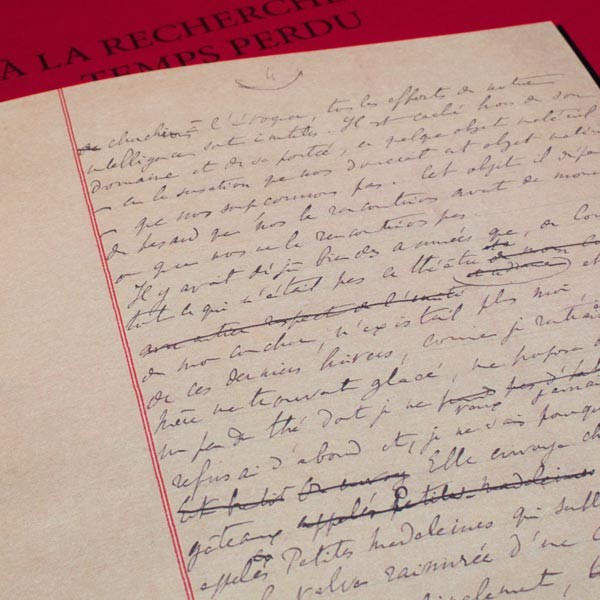 À LA RECHERCHE
TEMPS PERDU
4
cherchions à l'évoquer, tous les efforts de notre
intelligence sont inutiles. Il est caché hors de son
domaine et de sa portée, en quelque objet matériel
en la sensation que nous donnerait cet objet matériel
que nous ne soupçonnons pas. Cet objet il dépend
du hasard que nous le rencontrions avant de mourir
ou que nous ne le rencontrions pas.
Il y avait déjà bien des années que, de Com
tout ce qui n'était pas le théâtre
de mon coucher, n'existait plus pour moi
de ces derniers hivers, comme je rentrais
mère me trouvant glacé, me proposa de
un peu de thé dont je ne
refusai d'abord et, je ne sais pourquoi
Elle envoya ch
gâteaux appelés Petites madeleines
appelés Petites madeleines qui sembl
valve rainurée d'une C